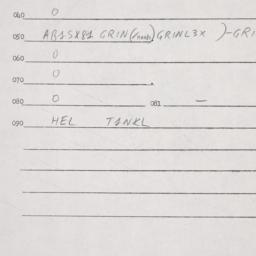 040 0
050 AB1SX81 GRIN( )GRINL3X )-GRI
060 0
070 0
080 0 081 —
090 HEL TANKL